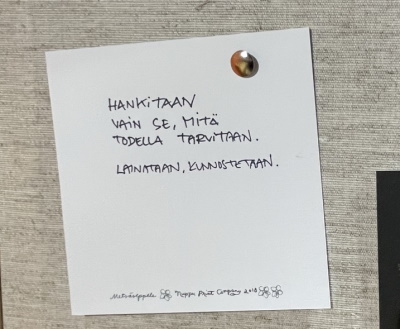 HANKITAAN
VAIN SE, MITÄ
TODELLA TARVITAAN.
LAINATAAN, KUNNOSTETAAN.
Print Company 2018